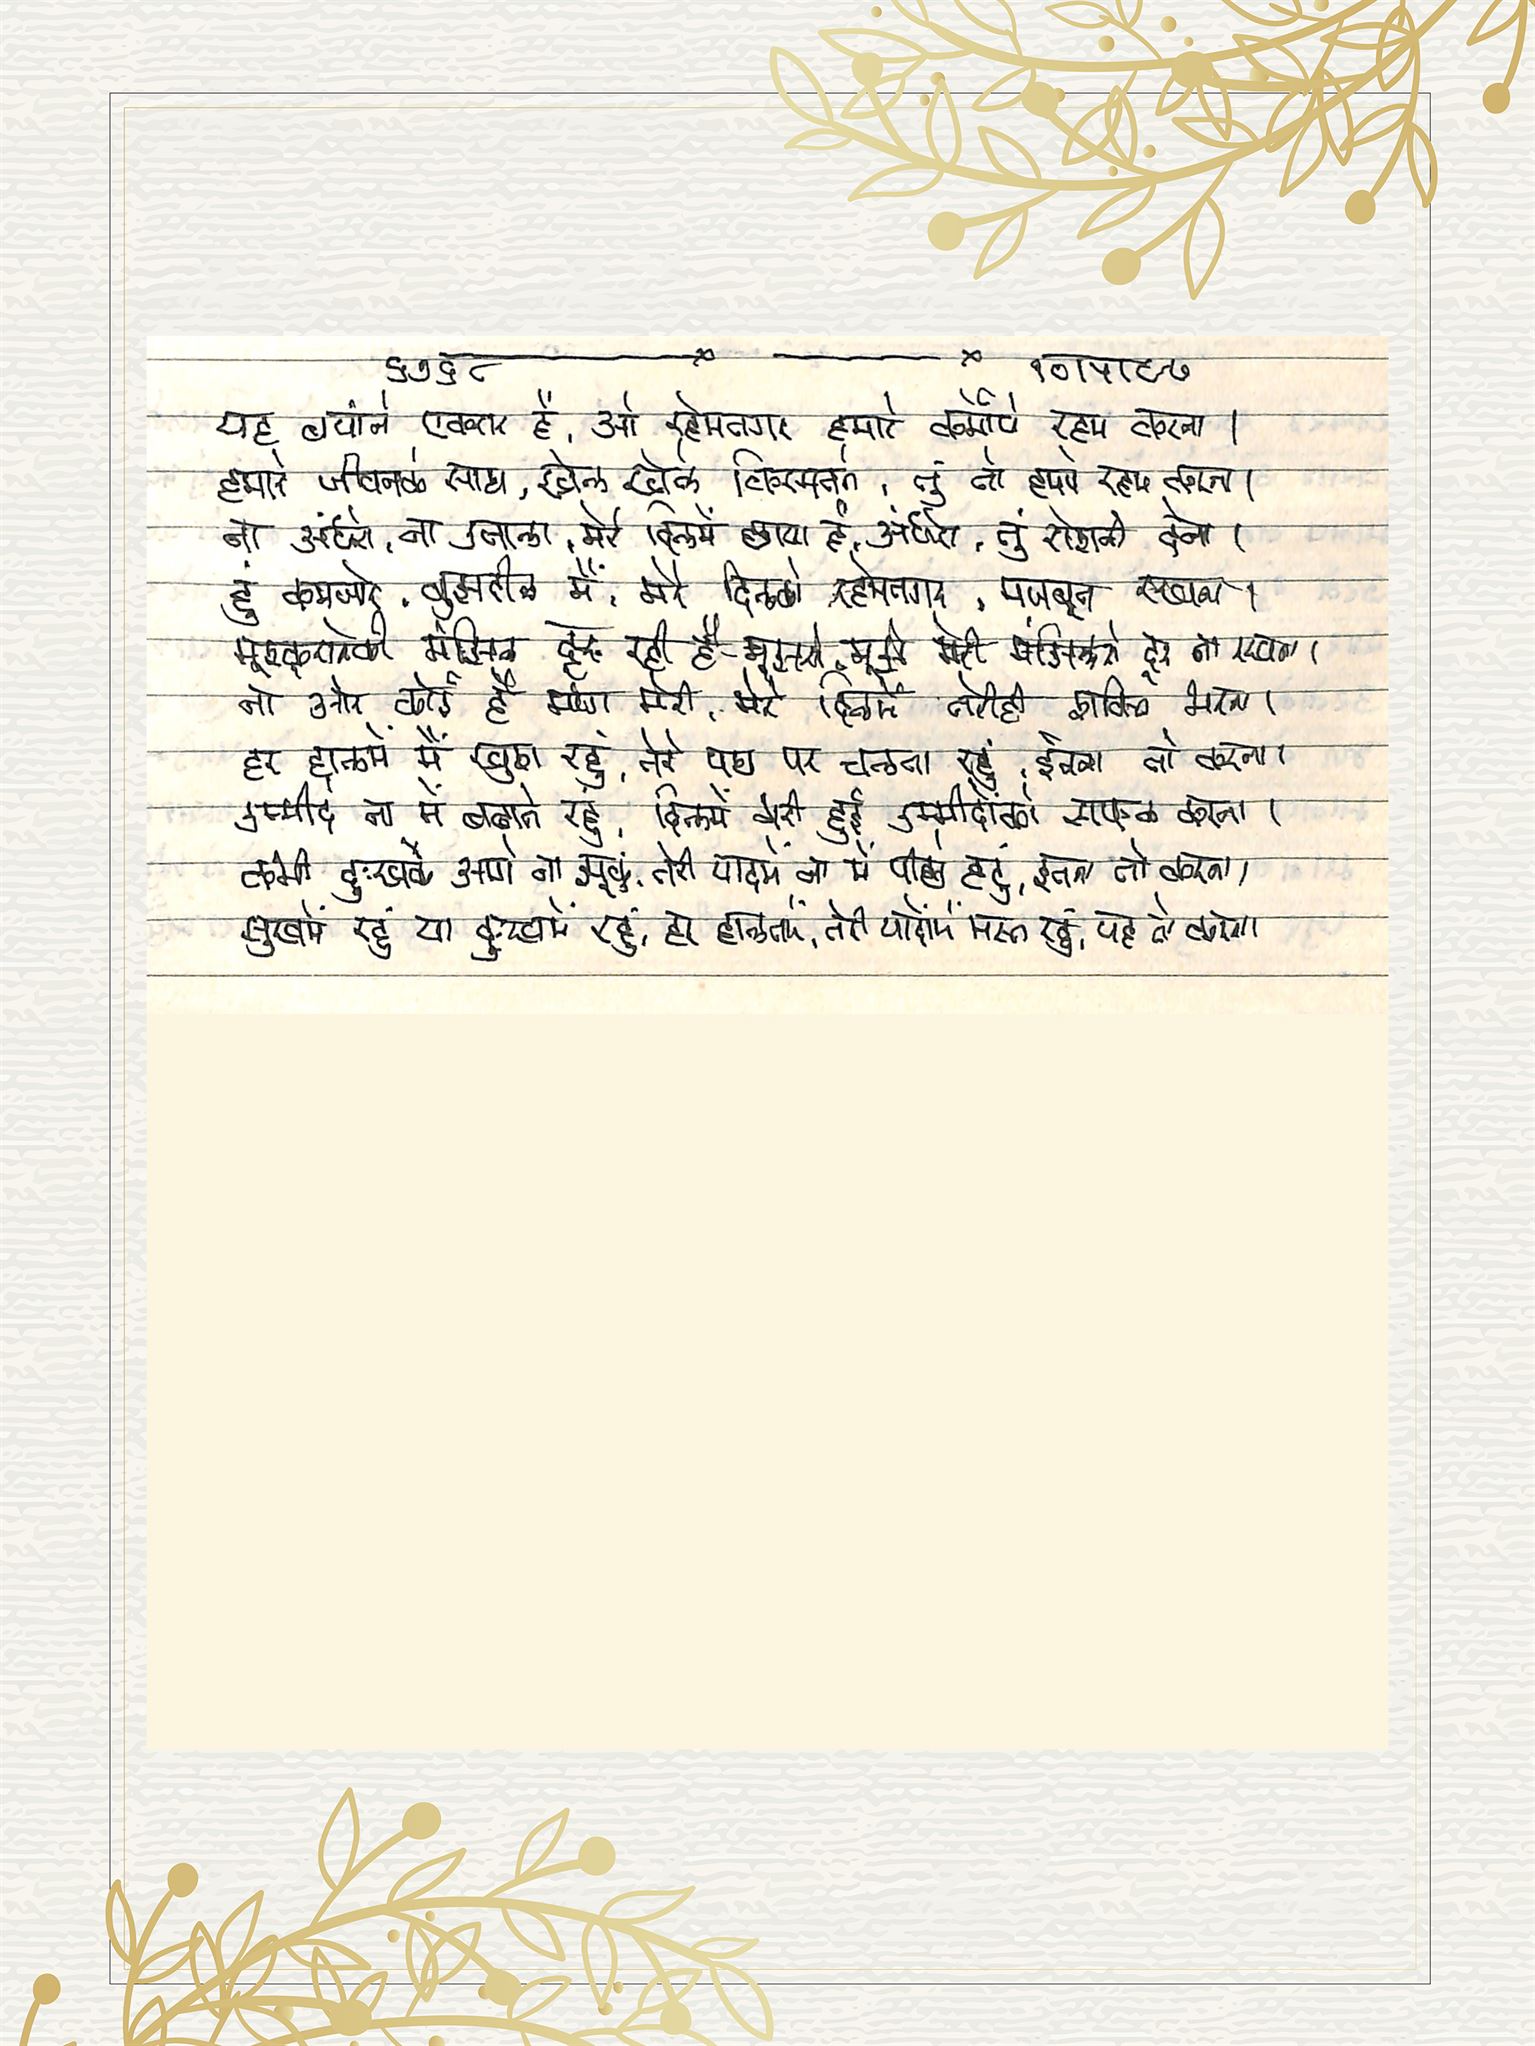 ६७६८ १०।५।८७
यह बयांने एकरार है, ओ रहेमनगर हमारे कर्मोपे रहम करना।
हमारे जीवनके साथ, खेल खेले किस्मतने, तुं तो हमपे रहम करना।
ना अंधेरा, ना उजाला, मेरे दिलमें छाया है, अंधेरा, तुं रोशनी देना।
हुं कमजोर, बुझदील मैं, मेरे दिलको रहेमनगर, मजबूत रखना।
मुस्कुरानेकी मंझिल रही है मुझसे, मुझे मेरी मंझिलसे दूर ना रखना।
ना और कोई है मंशा मेरी, मेरे दिलमें तेरीही भक्ति भरना।
हर हालमें मैं खुश रहुं, तेरे पथ पर चलता रहुं, ईतना तो करना।
उम्मीदे ना में बढाते रहुं, दिलमें भरी हुई उम्मीदोंको सफल करना।
कभी दुःखके आगे ना झुकुं, तेरी यादमें ना में पीछे हटुं, इतना तो करना।
सुखमें रहुं या दुःखमें रहुं, हर हालतमें, तेरी यादोंमें मस्त रहुं, यह तो करना।